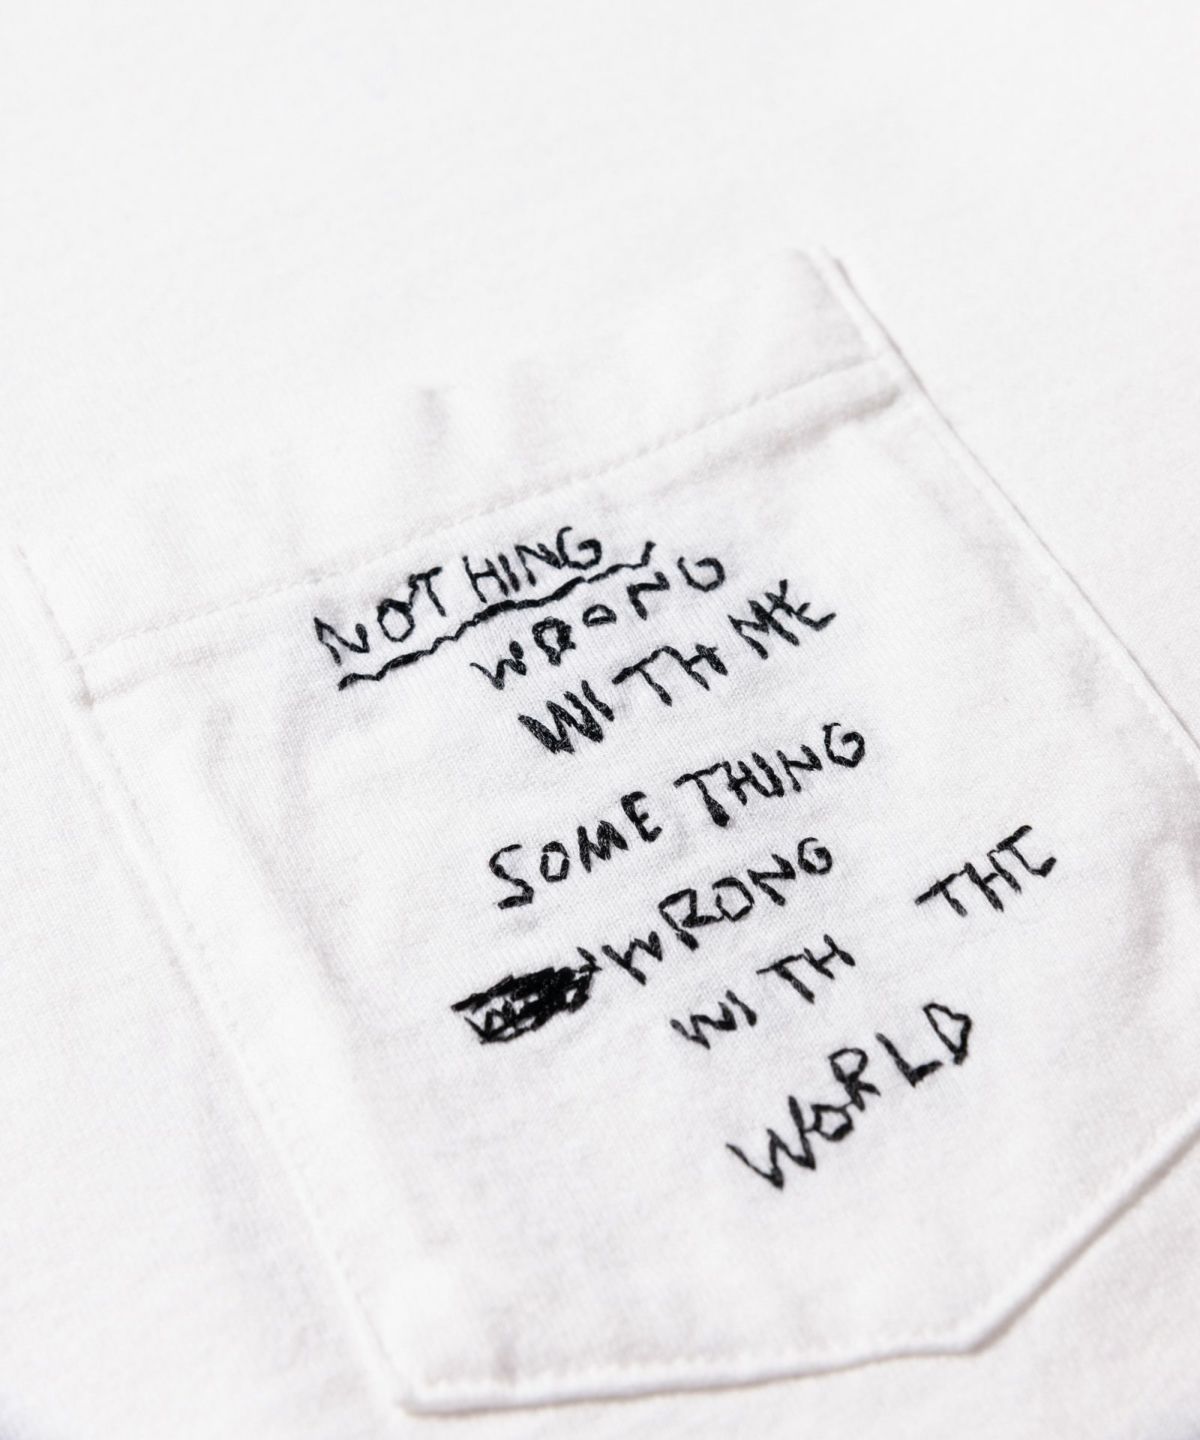 NOTHING
WRONG
WITH ME
SOME THING
WRONG
WITH THE
WORLD